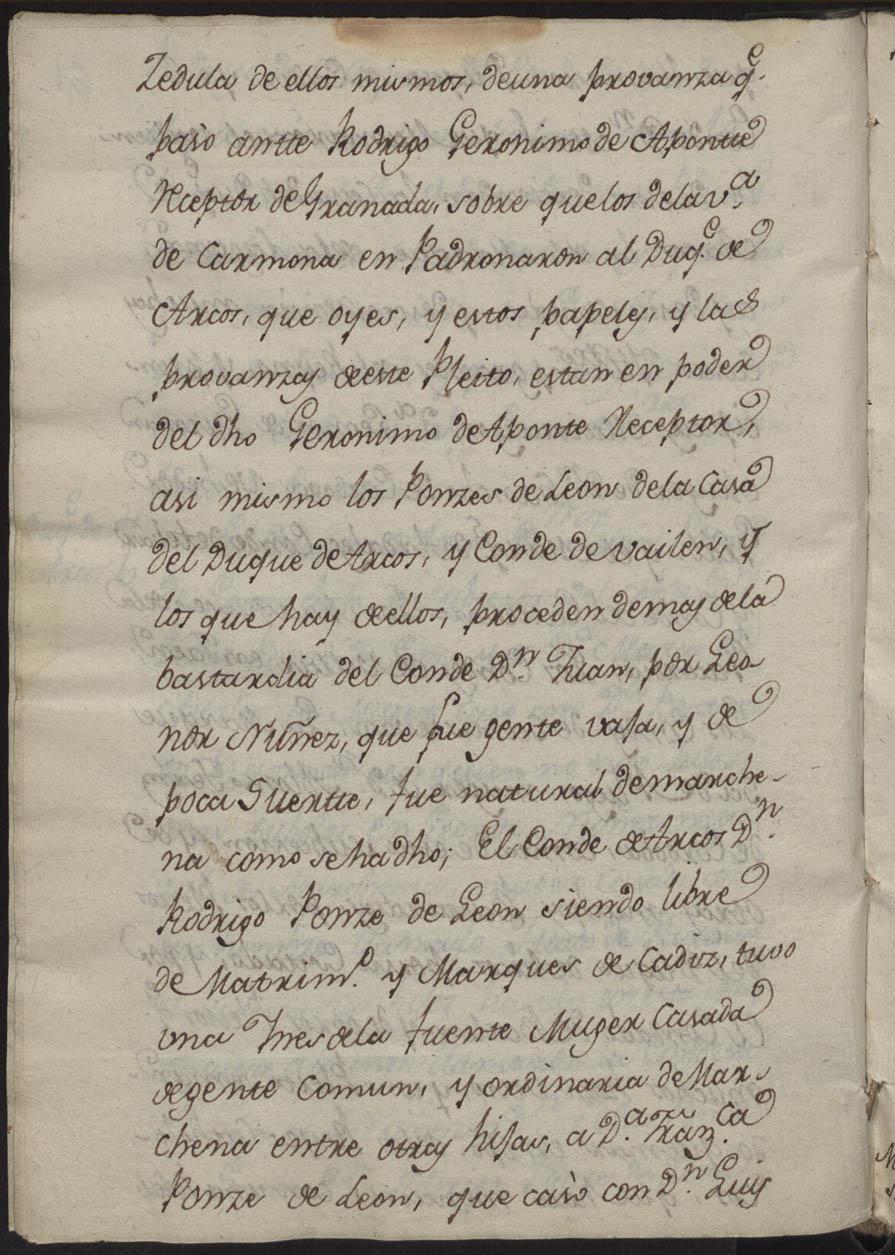 Zedula de ellos mismos, de una provanza q.e
pasò antte Rodrigo Geronimo de Aponte
Rceptor de Granada, sobre que los de la v.a
de Carmona en Padronaron al Duq.e de
Arcos, que oy es, y estos papeles, y las
provanzas de este Pleito, estan en poder
del dho Geronimo de Aponte Receptor,
asi mismo los Ponzes de Leon de la Casa
del Duque de Arcos, y Conde de Vailen, y
los que hay de ellos, proceden demas de la
bastardia del Conde D.n Juan, por Leo-
nor Nuñez, que fue gente vaja, y de
poca Suertte, fue natural de marche-
na como se ha dho; El Conde de Arcos D.n
Rodrigo Ponze de Leon siendo libre
de Matrim.o y Marques de Cadiz, tuvo
vna Ynes de la fuente Muger Casada
de gente Comun, y ordinaria de Mar-
chena entre otras hijas, a D.a Fran.ca
Ponze de Leon, que casò con D.n Luis